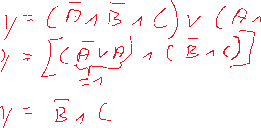 y = (A̅ ∧ B̅ ∧ C) ∨ (A ∧
y = [(A̅ ∨ A) ∧ (B̅ ∧ C)]
=1
y = B̅ ∧ C